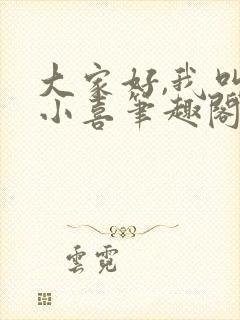 大家好,我叫
小喜筆趣閣
雲霓